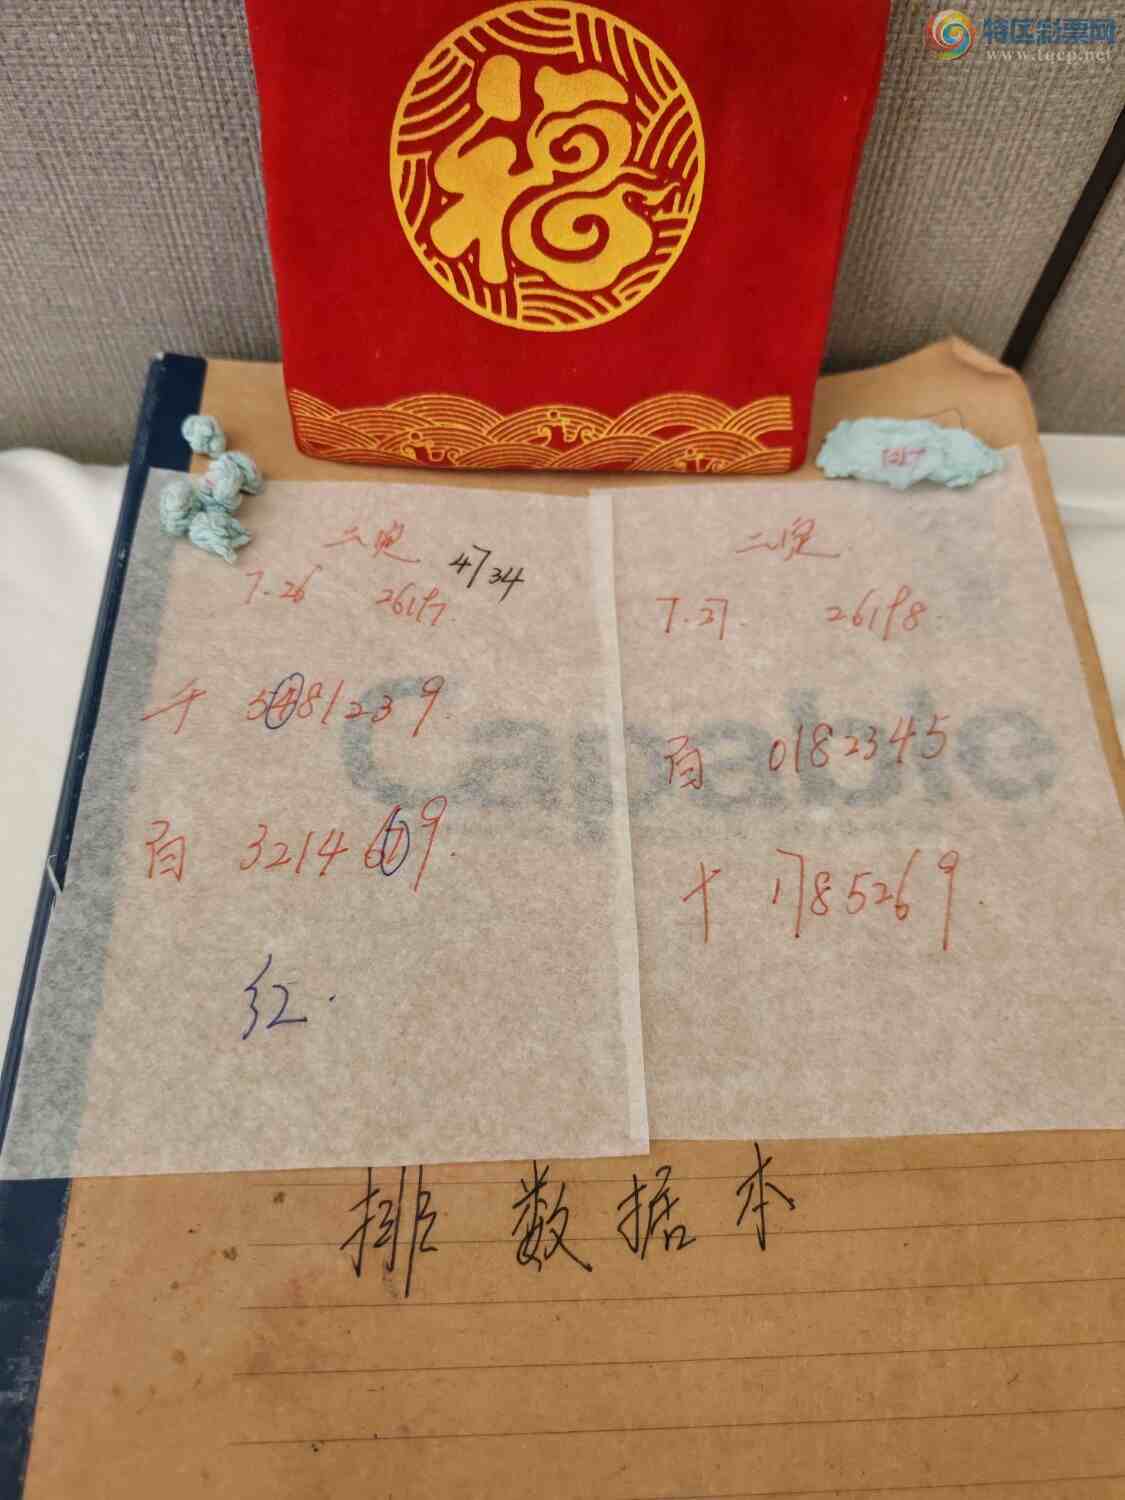 特区彩票网
www.tqcp.net
福
二党
4734
7.26 26197.
千 5481239.
百 3214679.
红.
二党
7.27. 26198.
百 0182345
十 1785269.
Capable
排数据本